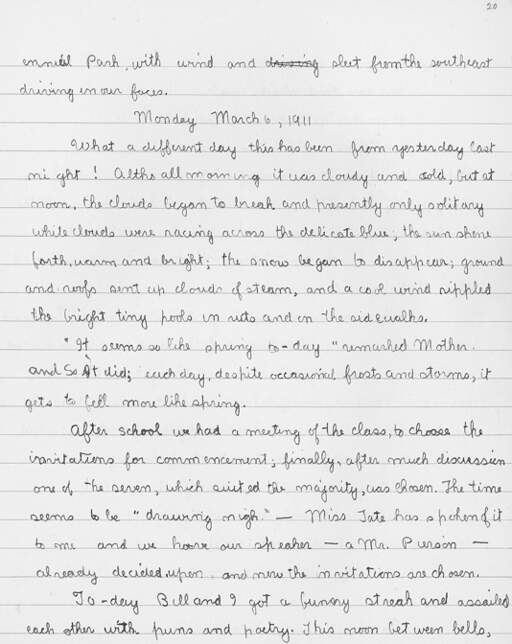 20
ennial Park, with wind and driving sleet from the southeast
driving in our faces.
Monday March 6, 1911
What a different day this has been from yesterday last
night! Altho all morning it was cloudy and cold, but at
noon, the clouds began to break and presently only solitary
white clouds were racing across the delicate blue; the sun shone
forth, warm and bright; the snow began to disappear; ground
and roofs sent up clouds of steam, and a cool wind rippled
the bright tiny pools in ruts and on the sidewalks.
"It seems so like spring to-day" remarked Mother.
and So it did; each day, despite occasional frosts and storms, it
gets to feel more like spring.
After school we had a meeting of the class, to choose the
invitations for commencement; finally, after much discussion
one of the seven, which suited the majority, was chosen. The time
seems to be "drawing nigh." — Miss Tate has spoken of it
to me and we have our speaker — a Mr. Pierson —
already decided upon, and now the invitations are chosen.
To-day Bill and I got a funny streak and assailed
each other with puns and poetry. This noon between bells,